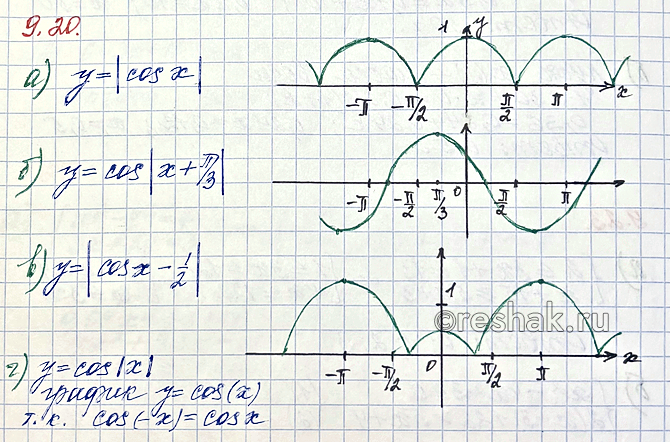 9.20.
а) y=|cos x|
1 y
-π -π/2 π/2 π x
б) y=cos|x+π/3|
-π -π/2 π/3 0 π/2 π
в) y=|cosx-1/2|
1
©reshak.ru
-π -π/2 0 π/2 π x
г) y=cos|x|
график y=cos(x)
т.к. cos(-x)=cosx